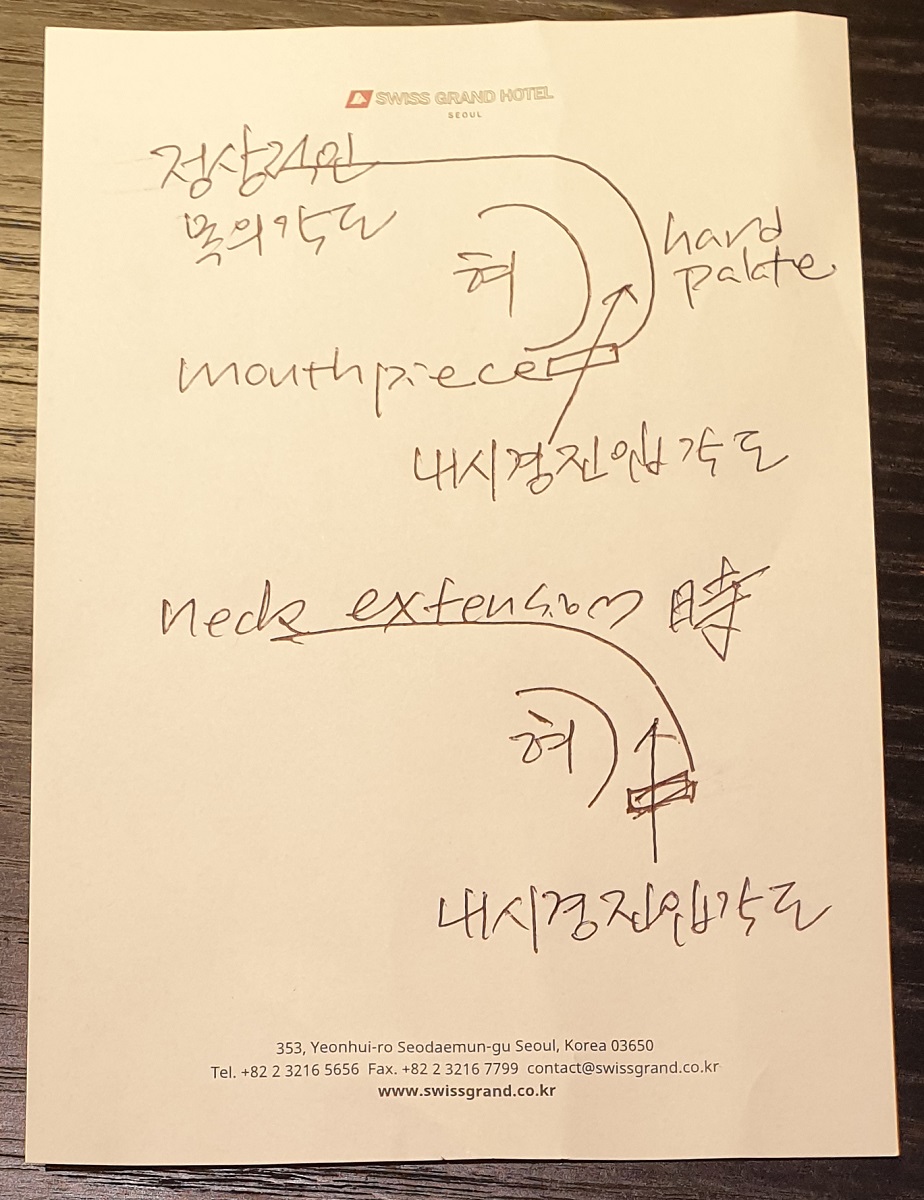 SWISS GRAND HOTEL
SEOUL
정상적인
목의 각도
혀
hard
palate
mouthpiece
내시경 진입 각도
neck extension 時
혀
내시경 진입 각도
353, Yeonhui-ro Seodaemun-gu Seoul, Korea 03650
Tel. +82 2 3216 5656 Fax. +82 2 3216 7799 contact@swissgrand.co.kr
www.swissgrand.co.kr